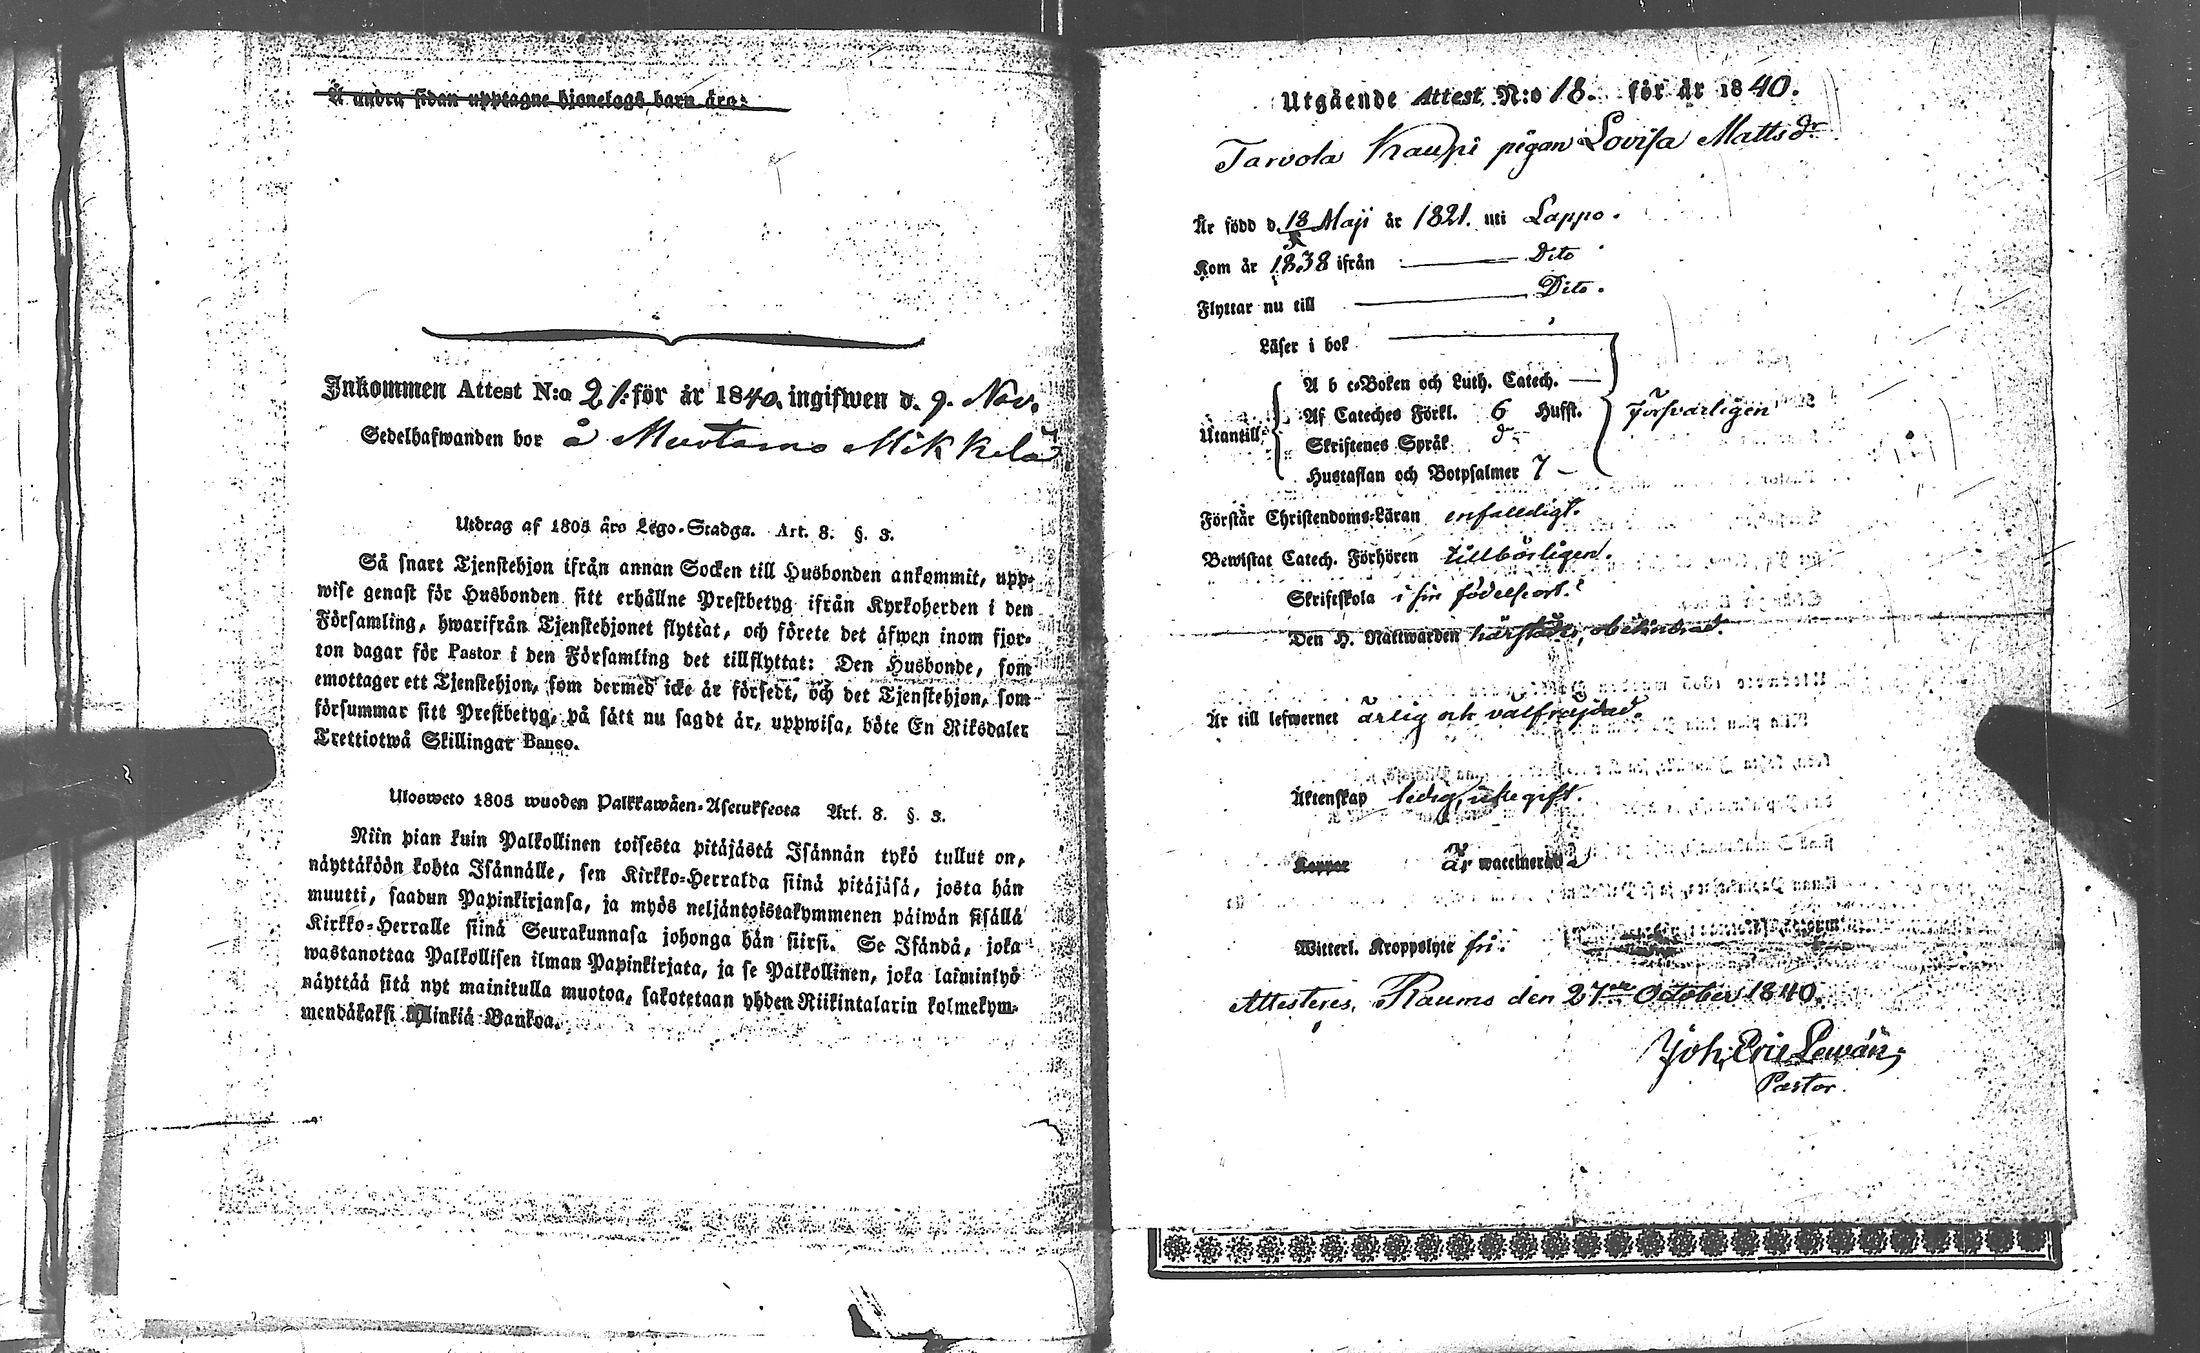 Å andra sidan upptagne hjonelags barn äro:
Inkommen Attest N:o 21. för år 1840. ingifwen d. 9. Nov.
Sedelhafwanden bor å Mikkilä
Utdrag af 1805 åro Lego-Stadga. Art. 8. §. 3.
Så snart Tjenstehjon ifrån annan Socken till Husbonden ankommit, upp-
wise genast för Husbonden sitt erhållne Prestbetyg ifrån Kyrkoherden i den
Församling, hwarifrån Tjenstehjonet flyttat, och förete det äfwen inom fjor-
ton dagar för Pastor i den Församling det tillflyttat: Den Husbonde, som
emottager ett Tjenstehjon, som dermed icke är försedt, och det Tjenstehjon, som
försummar sitt Prestbetyg, på sätt nu sagdt är, uppwisa, böte En Riksdaler
Trettiotwå Skillingar Banco.
Uloswето 1805 wuoden Palkkawäen-Asetuksesta Art. 8. §. 3.
Niin pian kuin Palkollinen toisesta pitäjästä Isännän tykö tullut on,
näyttäköön kohta Isännälle, sen Kirkko-Herralda siinä pitäjäsä, josta hän
muutti, saadun Papinkirjansa, ja myös neljäntoistakymmenen päiwän sisällä
Kirkko-Herralle siinä Seurakunnasa johonga hän siirsi. Se Isändä, joka
wastanottaa Palkollisen ilman Papinkirjata, ja se Palkollinen, joka laiminlyö
näyttää sitä nyt mainitulla muotoa, sakotetaan yhden Riikintalarin kolmekym-
mendäkaksi Killinkiä Bankoa.
Utgående Attest N:o 18. för år 1840.
Tarvola Kaupi pigan Lovisa Mattsdr
Är född d. 18 Maji år 1821. uti Lappo.
Kom år 1838 ifrån Dito
Flyttar nu till Dito.
Läser i bok
A b c-Boken och Luth. Catech. —
Utantill: Af Cateches Förkl. 6 Hufst. försvarligen
Skriftenes Språk do
Hustaflan och Botpsalmer 7 —
Förstår Christendoms-Läran enfaldigt.
Bewistat Catech. Förhören tillbörligen.
Skriftskola i sin födelseort.
Den H. Nattwarden härstädes, obehindrad.
Är till lefwernet ärlig och välfrejdad.
Äktenskap ledig, icke gift.
Koppor är waccinerad
Witterl. Kroppslyte fri.
Attesteres, Raumo den 27de October 1840.
Joh. Eric Lewán,
Pastor.